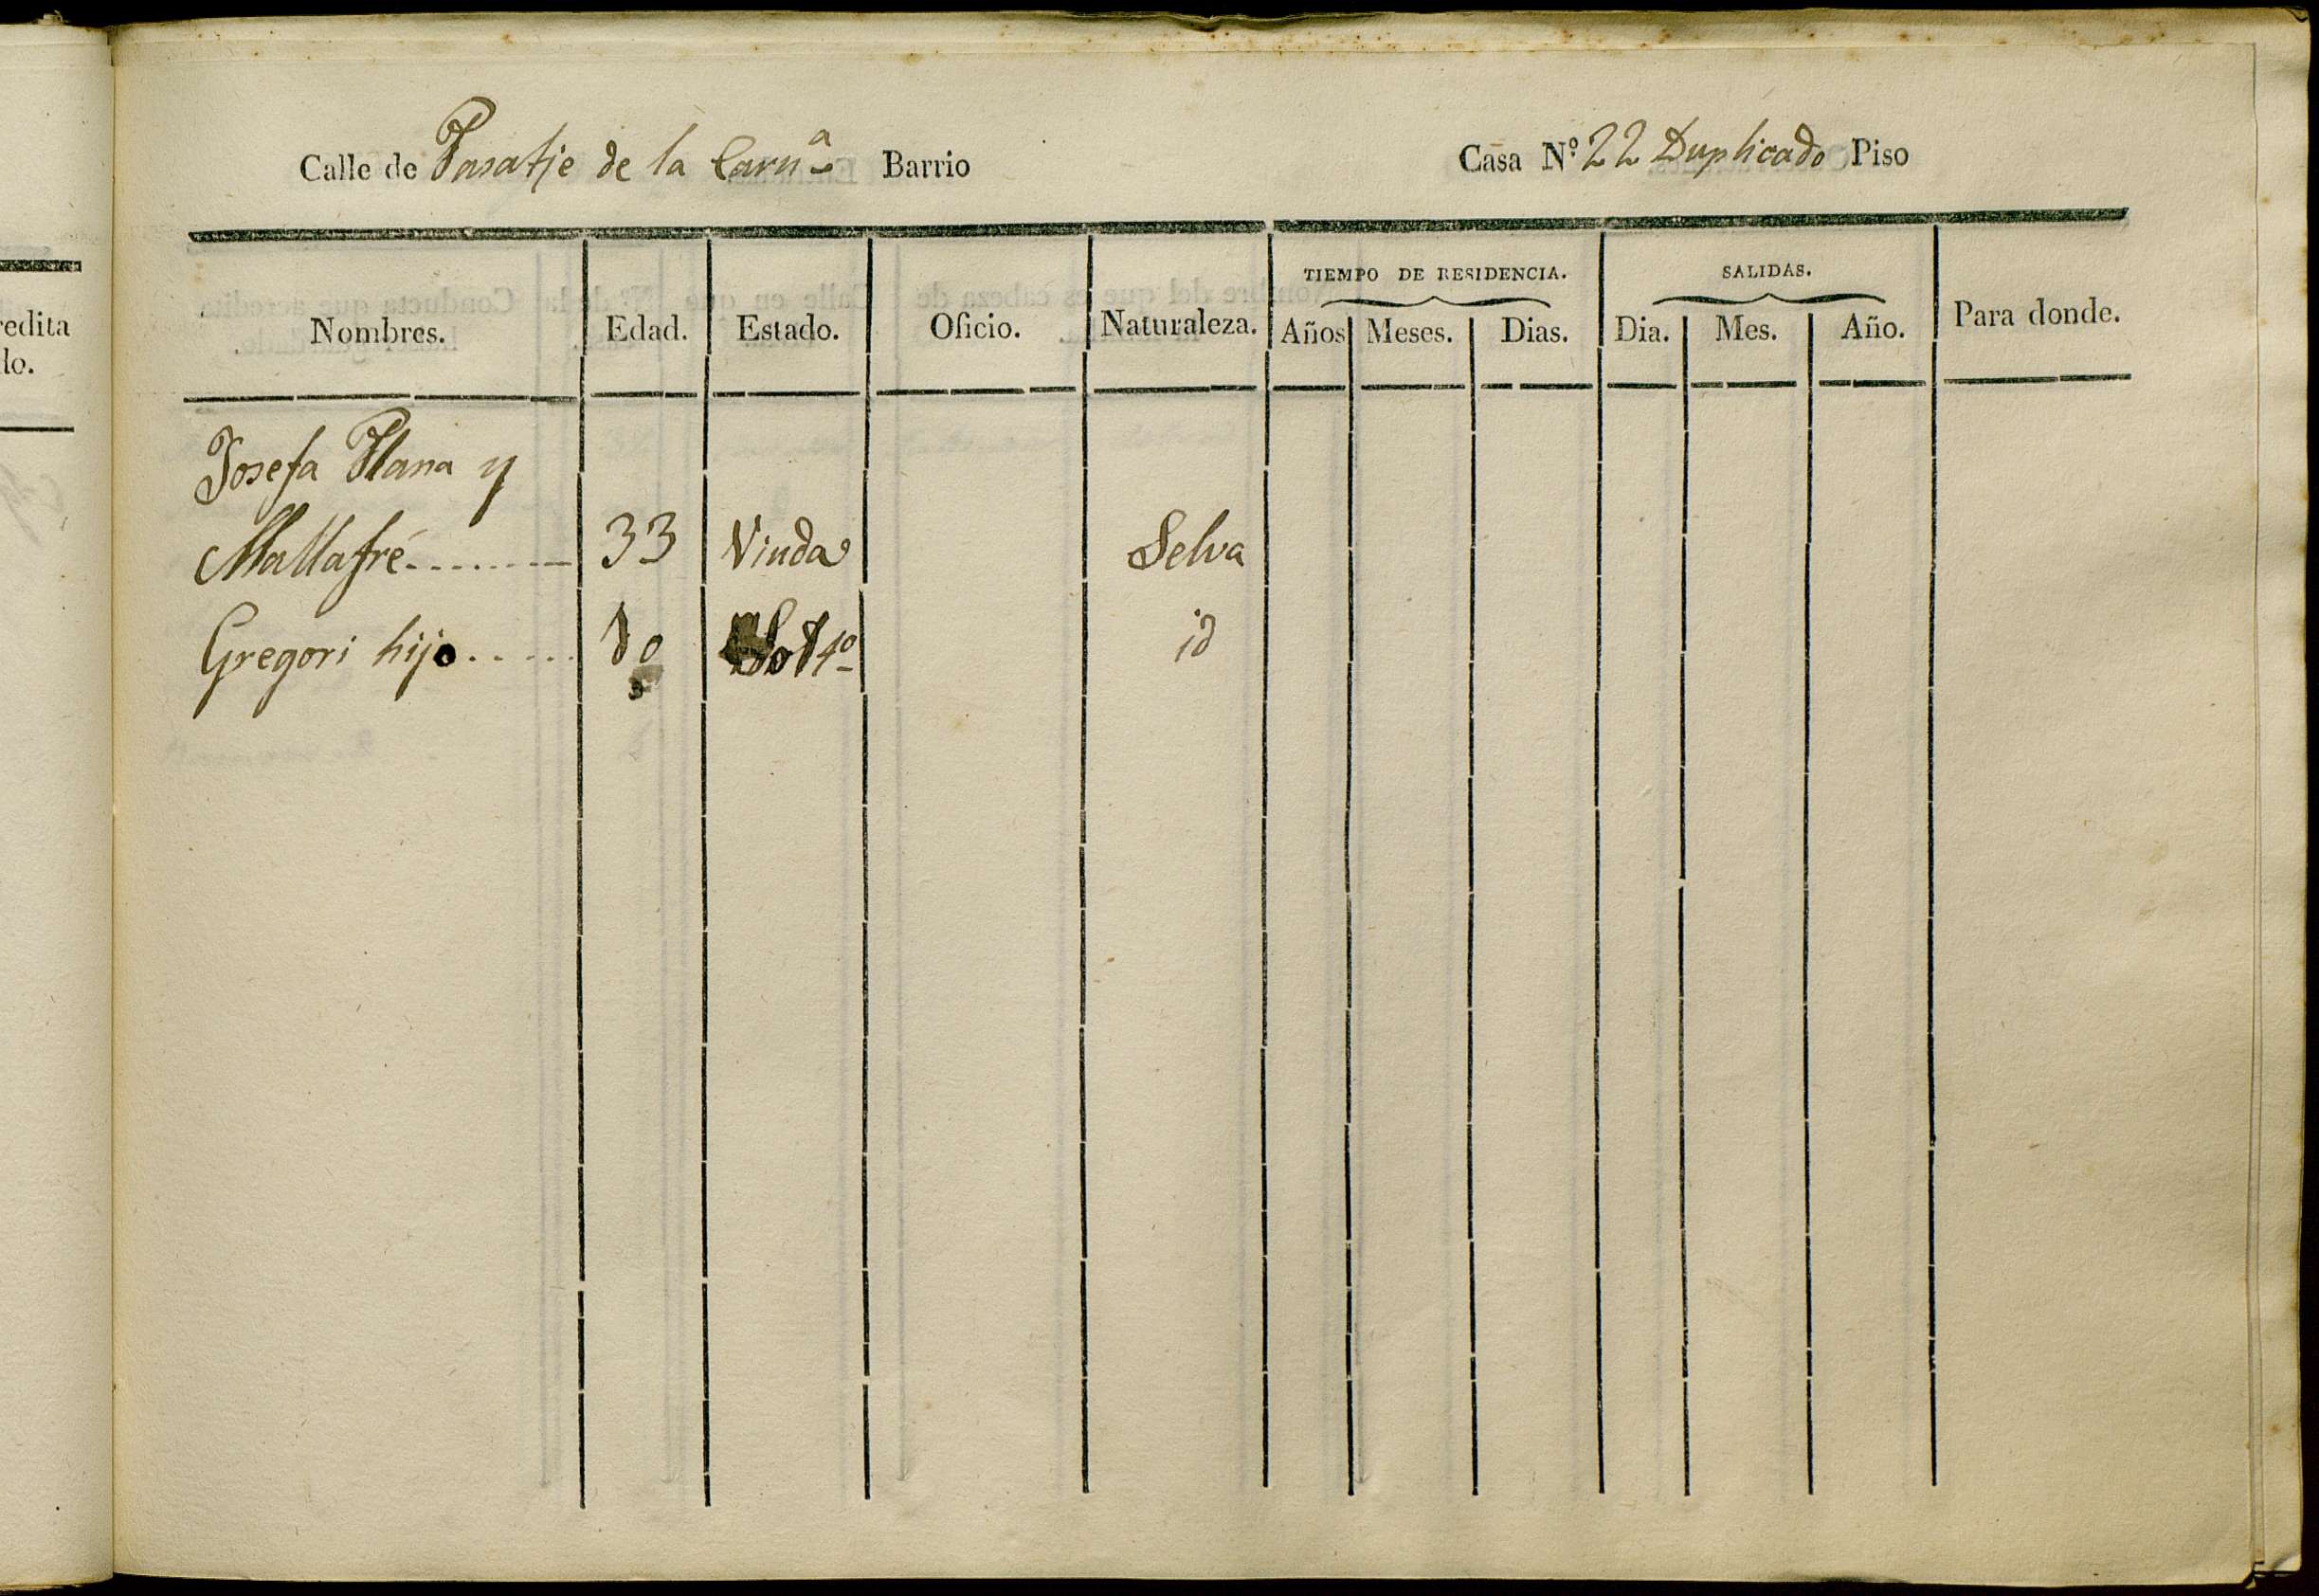 Calle de Pasatje de la Carnª Barrio Casa Nº 22 Duplicado Piso
Nombres. Edad. Estado. Oficio. Naturaleza. TIEMPO DE RESIDENCIA. Años Meses. Dias. SALIDAS. Dia. Mes. Año. Para donde.
Josefa Plana y
Mallafré 33 Viuda Selva
Gregori hijo Solt.º id
redita
lo.